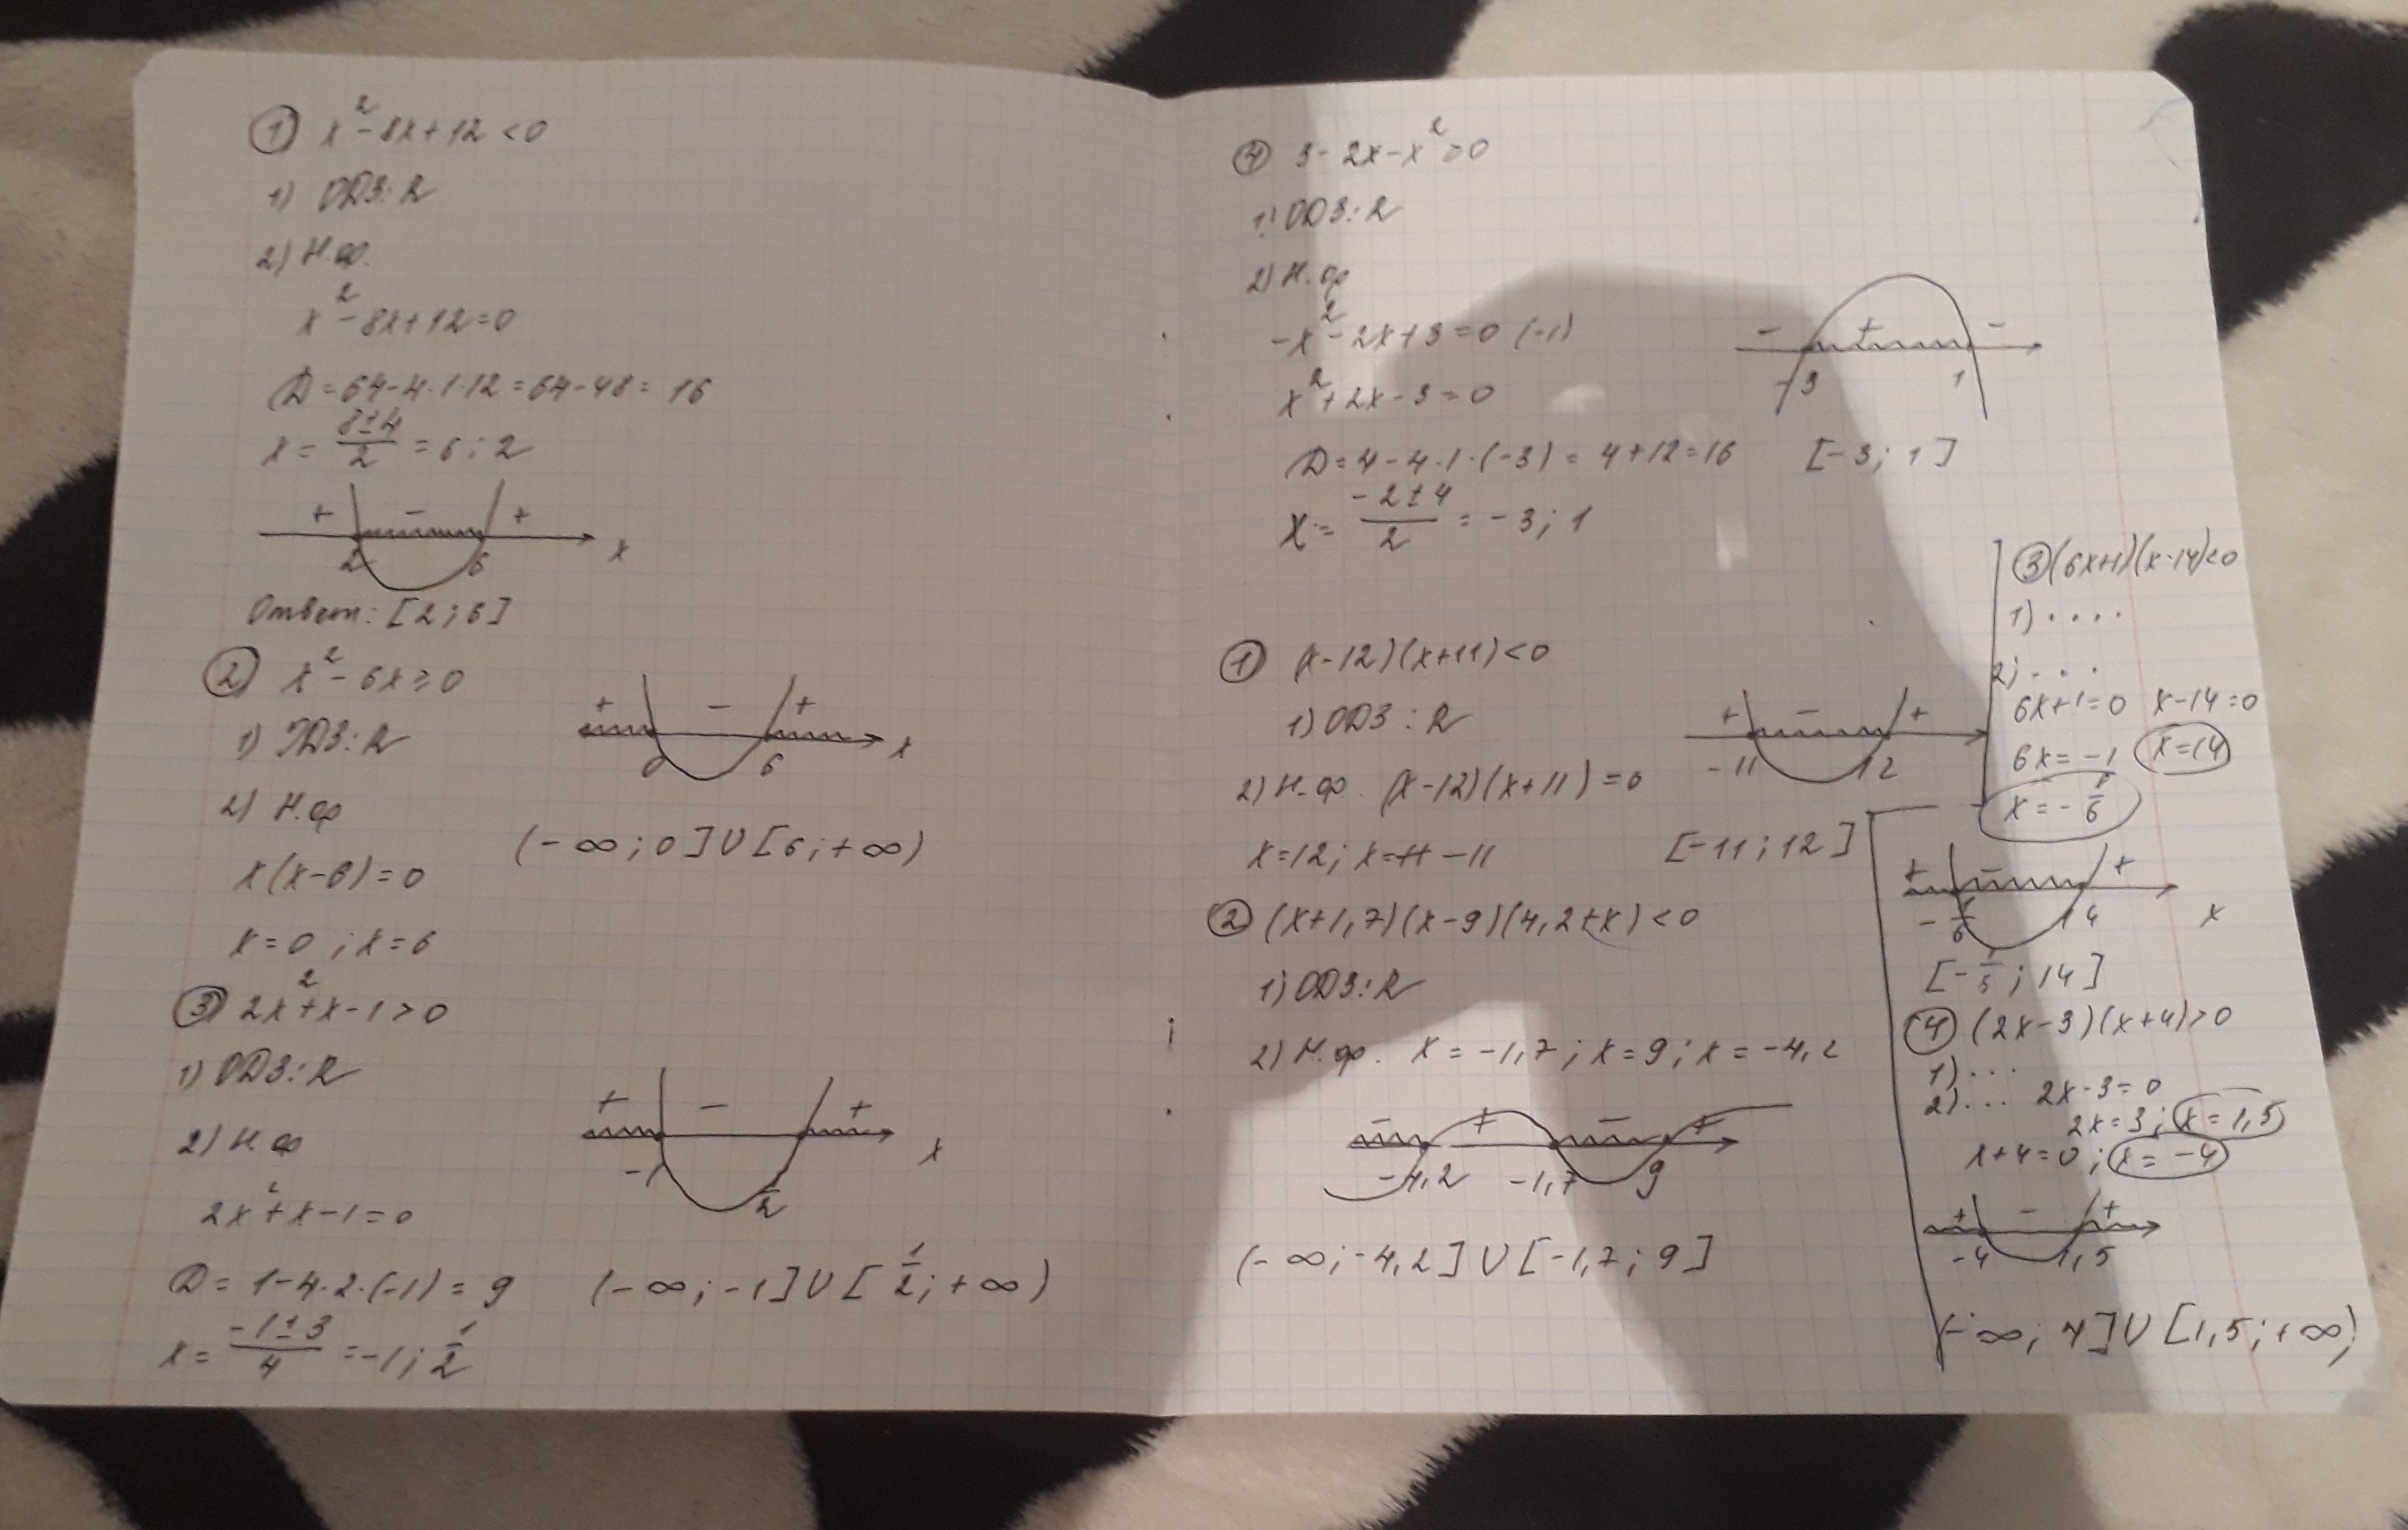 ① x² - 8x + 12 < 0
1) ОДЗ: R
2) Н.ф.
x² - 8x + 12 = 0
D = 64 - 4·1·12 = 64 - 48 = 16
x = (8 ± 4)/2 = 6; 2
+ - +
2 6 x
Ответ: [2; 6]
② x² - 6x ≥ 0
1) ОДЗ: R
2) Н.ф
x(x-6) = 0
x = 0; x = 6
+ - +
0 6 x
(-∞; 0] U [6; +∞)
③ 2x² + x - 1 > 0
1) ОДЗ: R
2) Н.ф
2x² + x - 1 = 0
D = 1 - 4·2·(-1) = 9
x = (-1 ± 3)/4 = -1; 1/2
+ - +
-1 1/2 x
(-∞; -1] U [1/2; +∞)
④ 3 - 2x - x² ≥ 0
1) ОДЗ: R
2) Н.ф
-x² - 2x + 3 = 0 (-1)
x² + 2x - 3 = 0
D = 4 - 4·1·(-3) = 4 + 12 = 16
x = (-2 ± 4)/2 = -3; 1
- + -
-3 1
[-3; 1]
① (x-12)(x+11) < 0
1) ОДЗ: R
2) Н.ф. (x-12)(x+11) = 0
x = 12; x = -11
+ - +
-11 12
[-11; 12]
② (x+1,7)(x-9)(4,2+x) < 0
1) ОДЗ: R
2) Н.ф. x = -1,7; x = 9; x = -4,2
- + - +
-4,2 -1,7 9
(-∞; -4,2] U [-1,7; 9]
③ (6x+1)(x-14) < 0
1) ....
2) ...
6x+1 = 0 x-14 = 0
6x = -1 x = 14
x = -1/6
+ - +
-1/6 14 x
[-1/6; 14]
④ (2x-3)(x+4) > 0
1) ...
2) ... 2x-3 = 0
2x = 3; x = 1,5
x+4 = 0; x = -4
+ - +
-4 1,5
(-∞; 4] U [1,5; +∞)